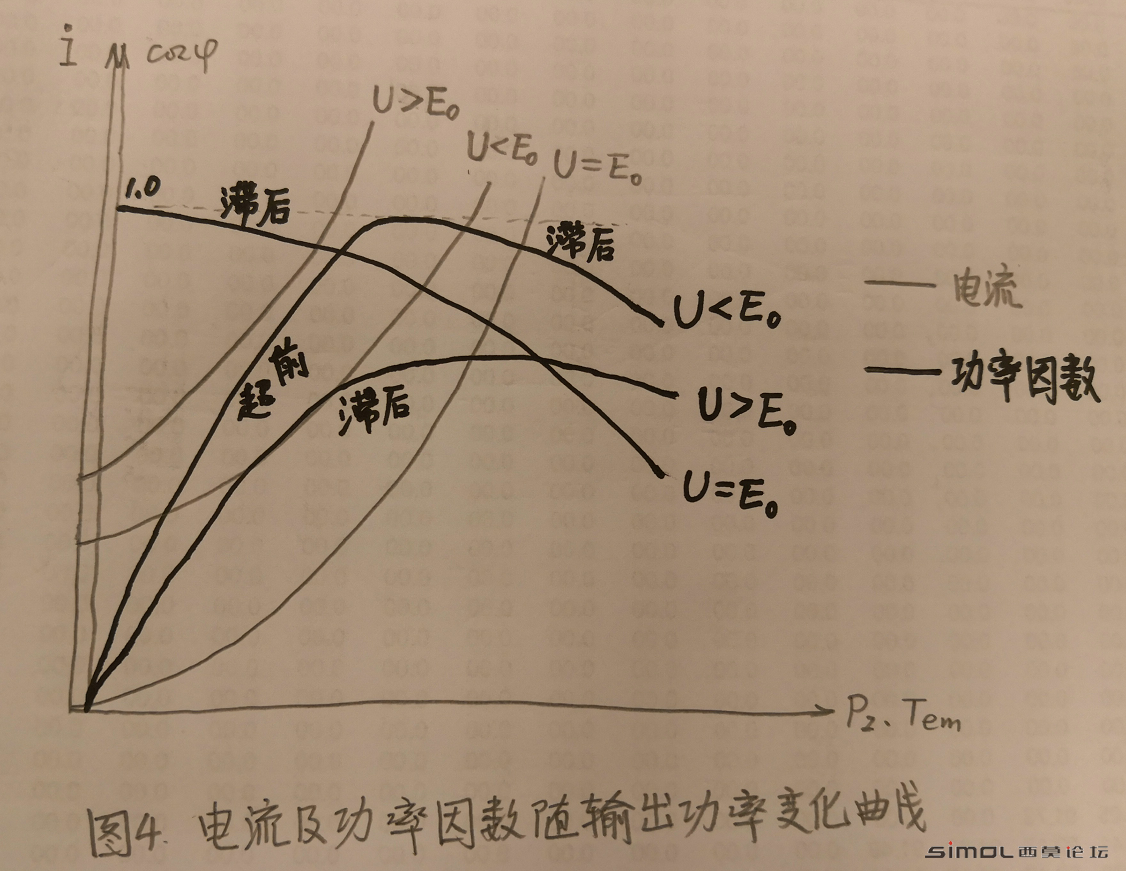 i cosφ
U>E₀
U<E₀ U=E₀
1.0 滞后
滞后
U<E₀
电流
超前
功率因数
滞后
U>E₀
U=E₀
P₂、Tem
图4. 电流及功率因数随输出功率变化曲线
SIMOL西莫论坛